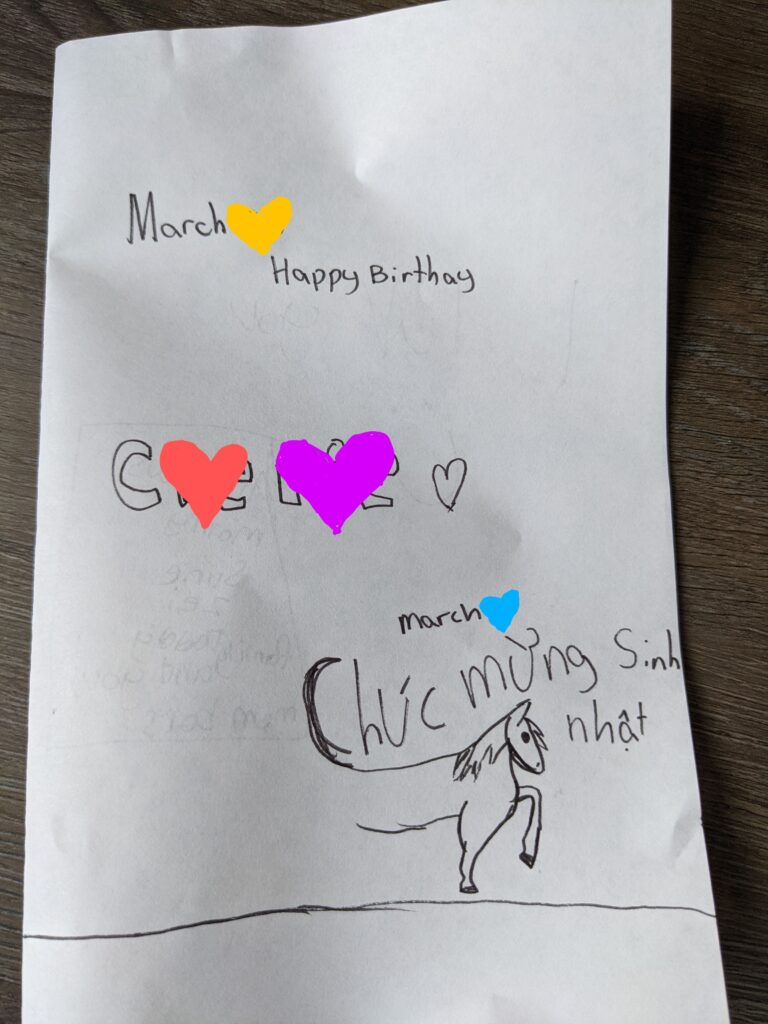 March
Happy Birthay
march
Chúc mừng Sinh
nhật